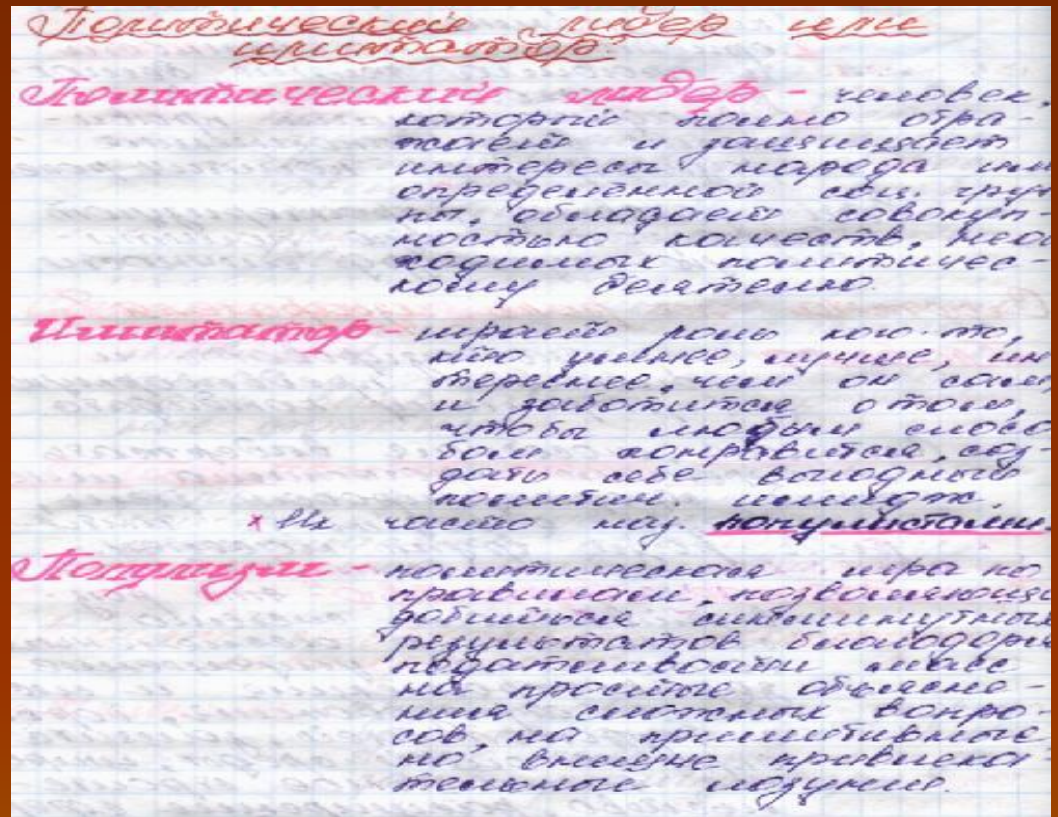 Политический лидер или
имитатор?
Политический лидер - человек,
который полно отра-
жает и защищает
интересы народа или
определённой соц. груп
пы, обладает совокуп-
ностью качеств, необ
ходимых политичес-
кому деятелю.
Имитатор - играет роль кого-то,
кто умнее, лучше, ин
тереснее, чем он сам,
и заботится о том,
чтобы любым спосо
бом понравиться, соз-
дать себе выгодный
политич. имидж.
х Их часто наз. популистами.
Популизм - политическая игра по
правилам, позволяющи
добиться сиюминутных
результатов благодаря
податливости масс
на простые объясне-
ния сложных вопро-
сов, на примитивные,
но внешне привлека-
тельные лозунги.